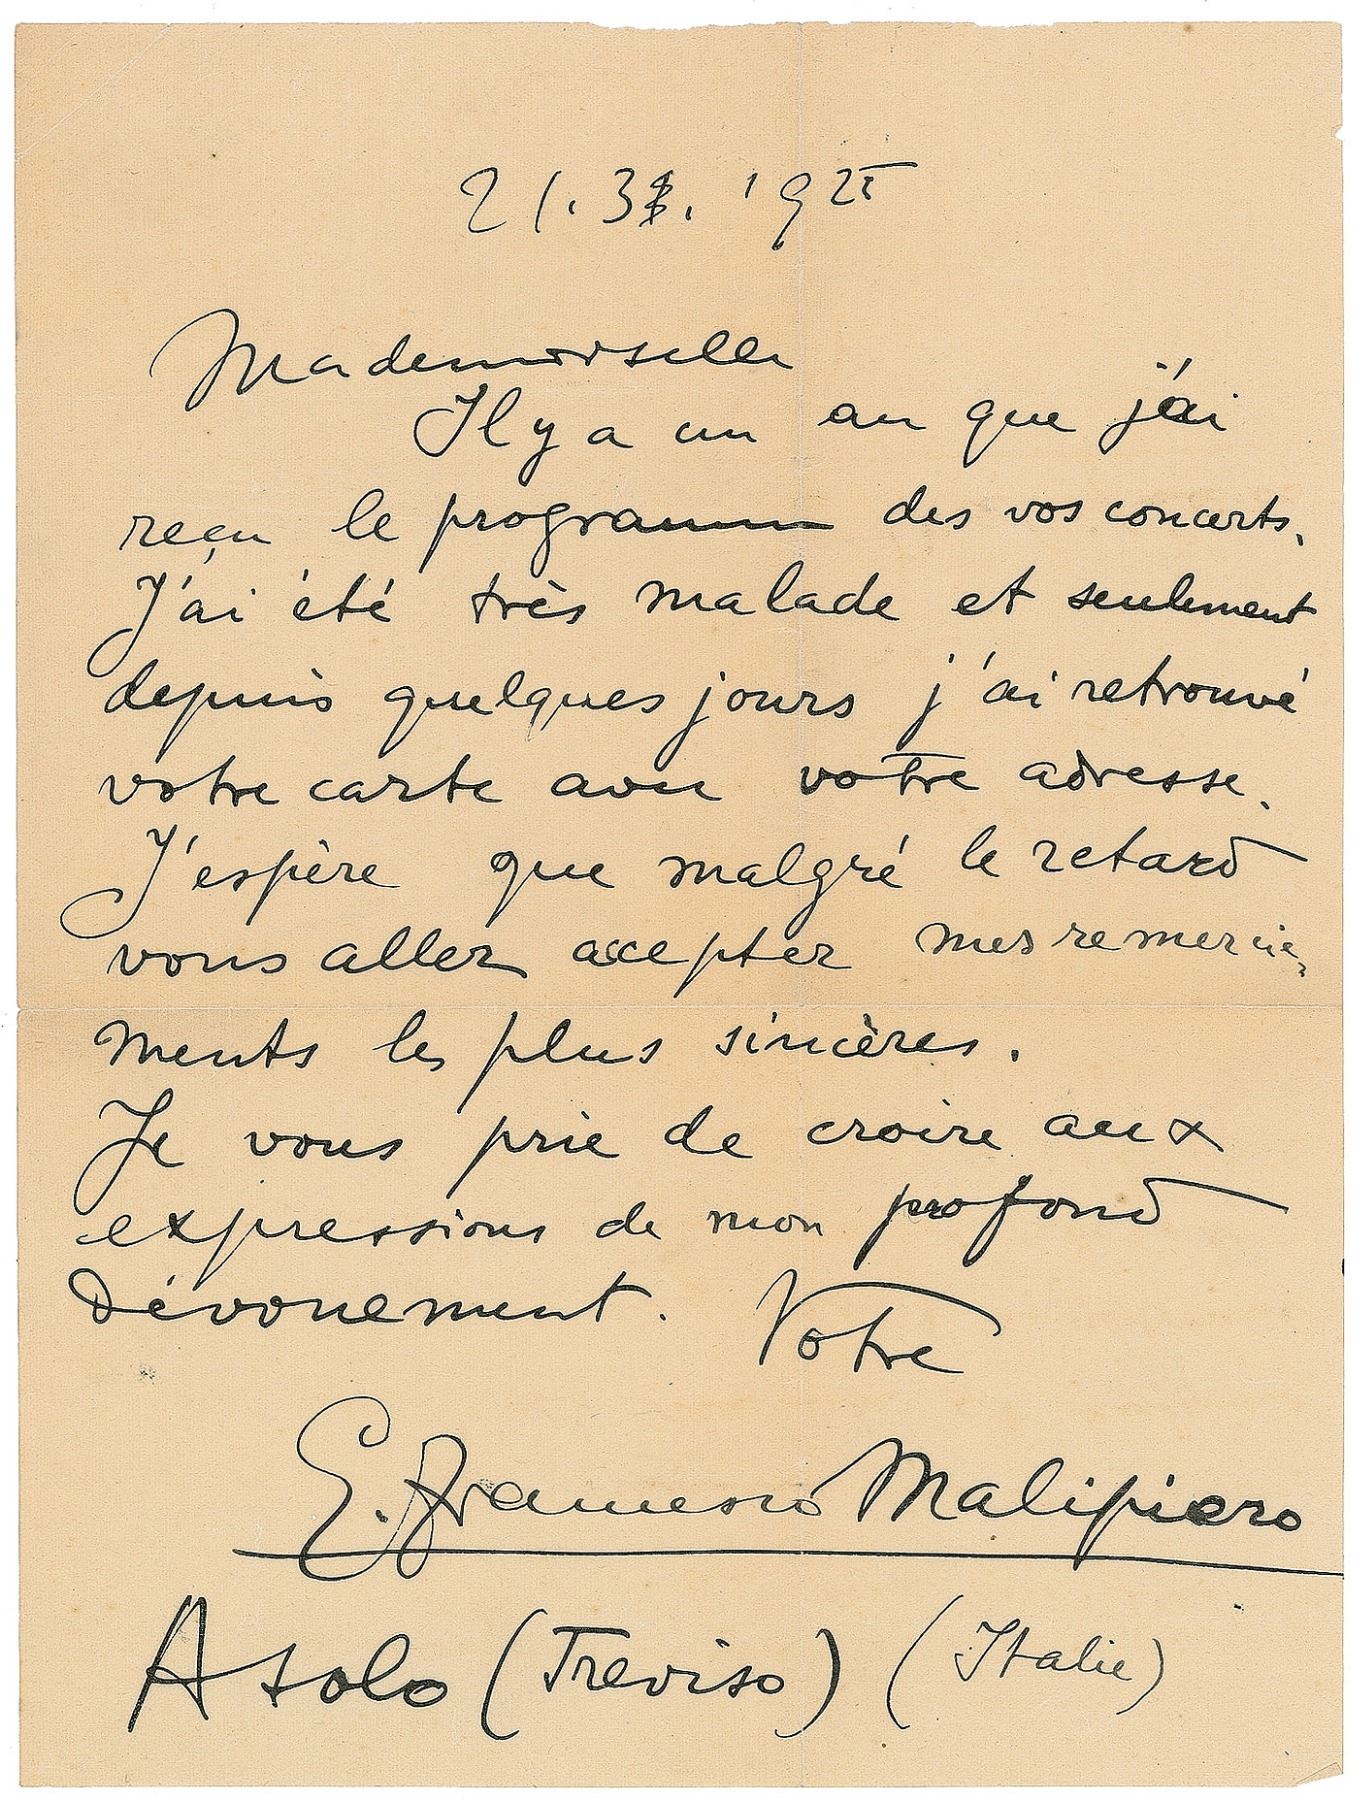 21. 3. 1925
Mademoiselle
Il y a un an que j'ai
reçu le programm des vos concerts.
J'ai été très malade et seulement
depuis quelques jours j'ai retrouvé
votre carte avec votre adresse.
J'espère que malgré le retard
vous allez accepter mes remercie-
ments les plus sincères.
Je vous prie de croire aux
expressions de mon profond
dévouement. Votre
G. Francesco Malipiero
Asolo (Treviso) (Italie)